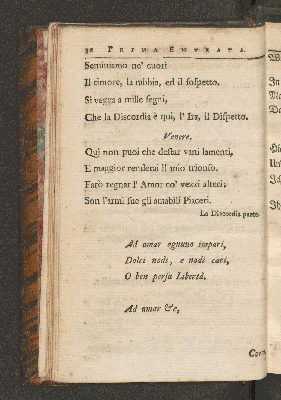 38 PRIMA ENTRATA.
Seminiamo ne' cuori
Il timore, la rabbia, ed il sospetto.
Si vegga a mille segni,
Che la Discordia è quì, l' Ira, il Dispetto.
Venere.
Quì non puoi che destar vani lamenti,
E maggior renderai il mio trionfo.
Farò regnar l' Amor co' vezzi alteri;
Son l'armi sue gli amabili Piaceri.
La Discordia parte.
Ad amar ognuno impari,
Dolci nodi, e nodi cari,
O ben persa Libertà.
Ad amar &c,